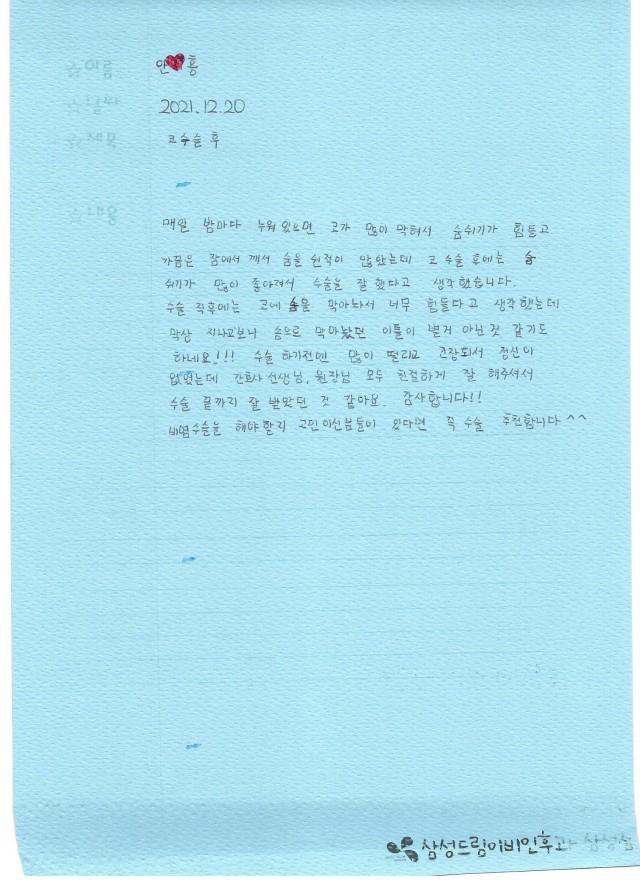 안 흥
2021.12.20
코수술 후
매일 밤마다 누워있으면 코가 많이 막혀서 숨쉬기가 힘들고
가끔은 잠에서 깨서 숨을 쉰적이 많았는데 코 수술 후에는 숨
쉬기가 많이 좋아져서 수술을 잘 했다고 생각했습니다.
수술 직후에는 코에 솜을 막아놔서 너무 힘들다고 생각했는데
막상 지나고보니 솜으로 막아놨던 이틀이 별거 아닌것 같기도
하네요!!! 수술 하기전엔 많이 떨리고 긴장회서 정신이
없었는데 간호사 선생님, 원장님 모두 친절하게 잘 해주셔서
수술 끝까지 잘 받았던 것 같아요. 감사합니다!!
비염수술을 해야할지 고민이신분들이 있다면 꼭 수술 추천합니다^^
삼성드림이비인후과 삼성